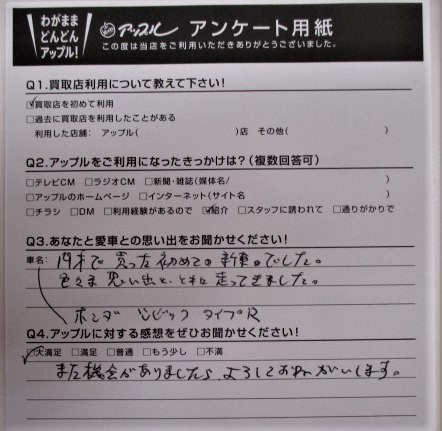 わがまま
どんどん
アップル!
アップル アンケート用紙
この度は当店をご利用いただきありがとうございました。
Q1.買取店利用について教えて下さい!
☑買取店を初めて利用
□過去に買取店を利用したことがある
利用した店舗: アップル( )店 その他( )
Q2.アップルをご利用になったきっかけは?(複数回答可)
□テレビCM □ラジオCM □新聞・雑誌(媒体名/ )
□アップルのホームページ □インターネット(サイト名 )
□チラシ □DM □利用経験があるので ☑紹介 □スタッフに誘われて □通りがかりで
Q3.あなたと愛車との思い出をお聞かせください!
車名: 19才で買った初めての新車でした。
色々な思い出と、ともに走ってきました。
ホンダ シビック タイプR
Q4.アップルに対する感想をぜひお聞かせください!
☑大満足 □満足 □普通 □もう少し □不満
また機会がありましたら、よろしくおねがいします。